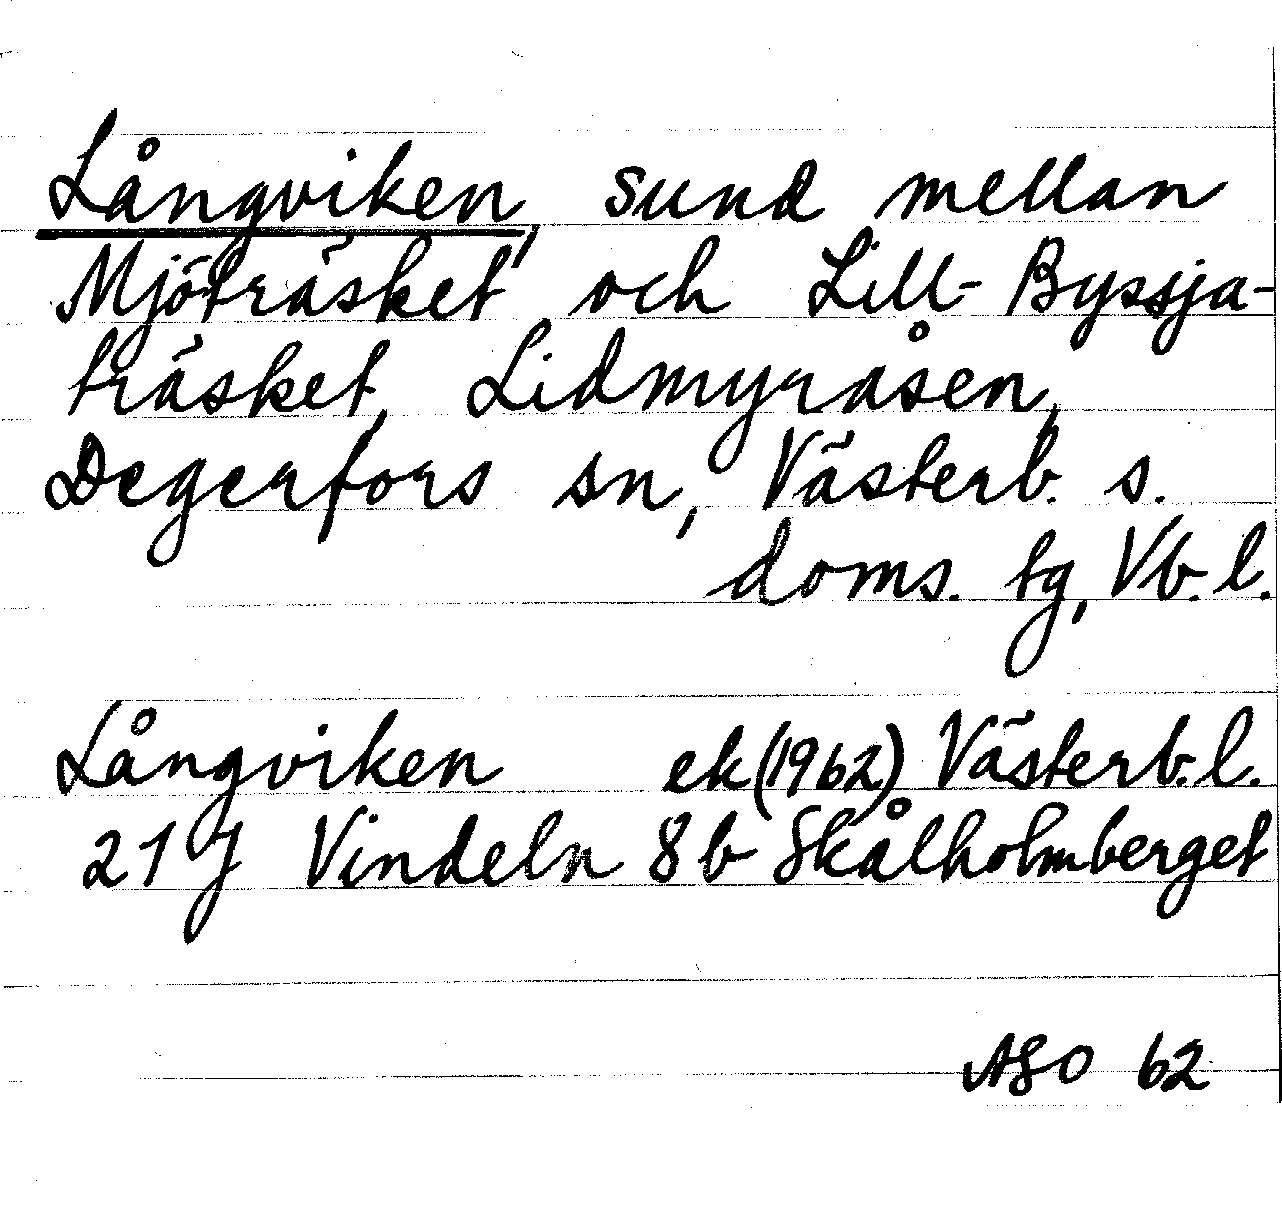 Långviken, sund mellan
Mjöträsket och Lill-Byssja-
träsket, Lidmyråsen,
Degerfors sn, Västerb. s.
doms. tg, Vb. l.
Långviken ek (1962) Västerb. l.
21 J Vindeln 8b Skålholmberget
ASO 62